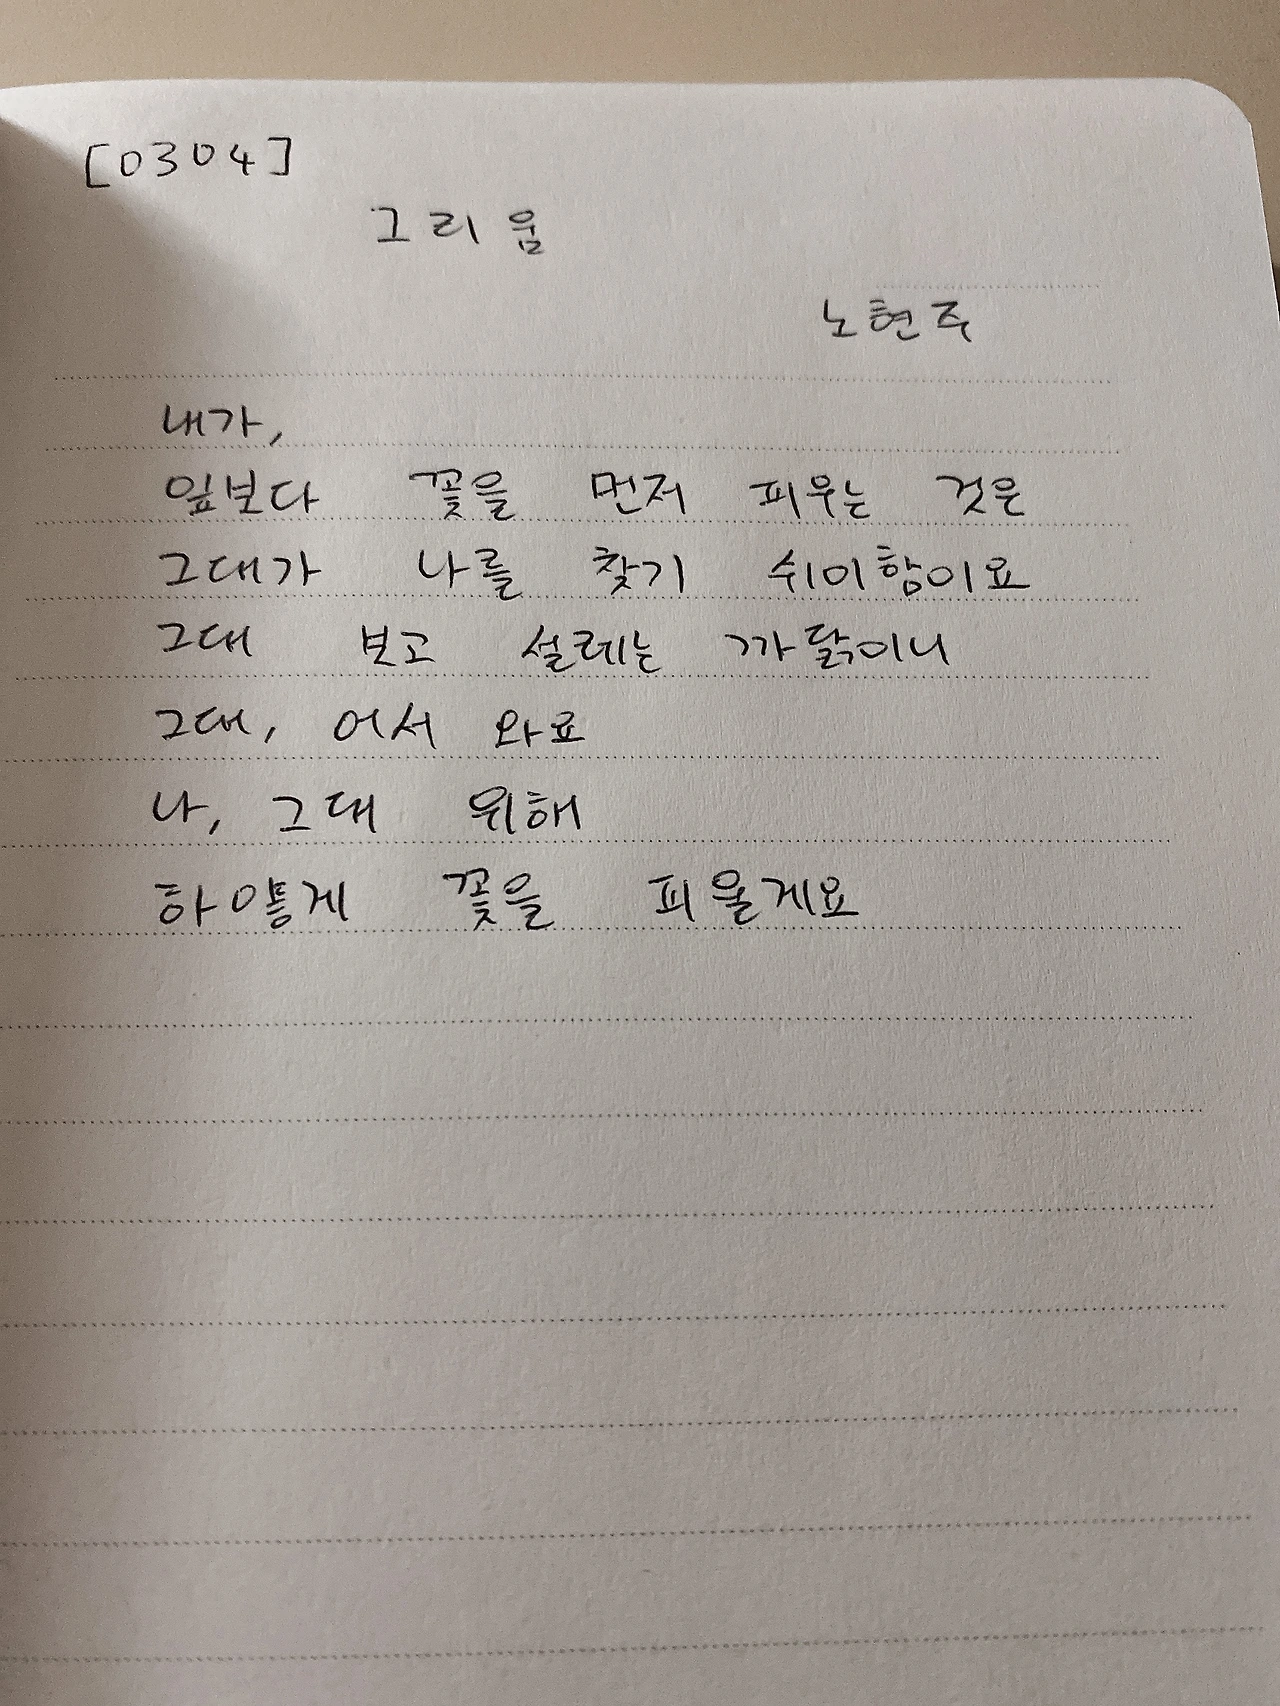 [0304]
그리움
노현주
내가,
잎보다 꽃을 먼저 피우는 것은
그대가 나를 찾기 쉬이함이요
그대 보고 설레는 까닭이니
그대, 어서 와요
나, 그대 위해
하얗게 꽃을 피울게요